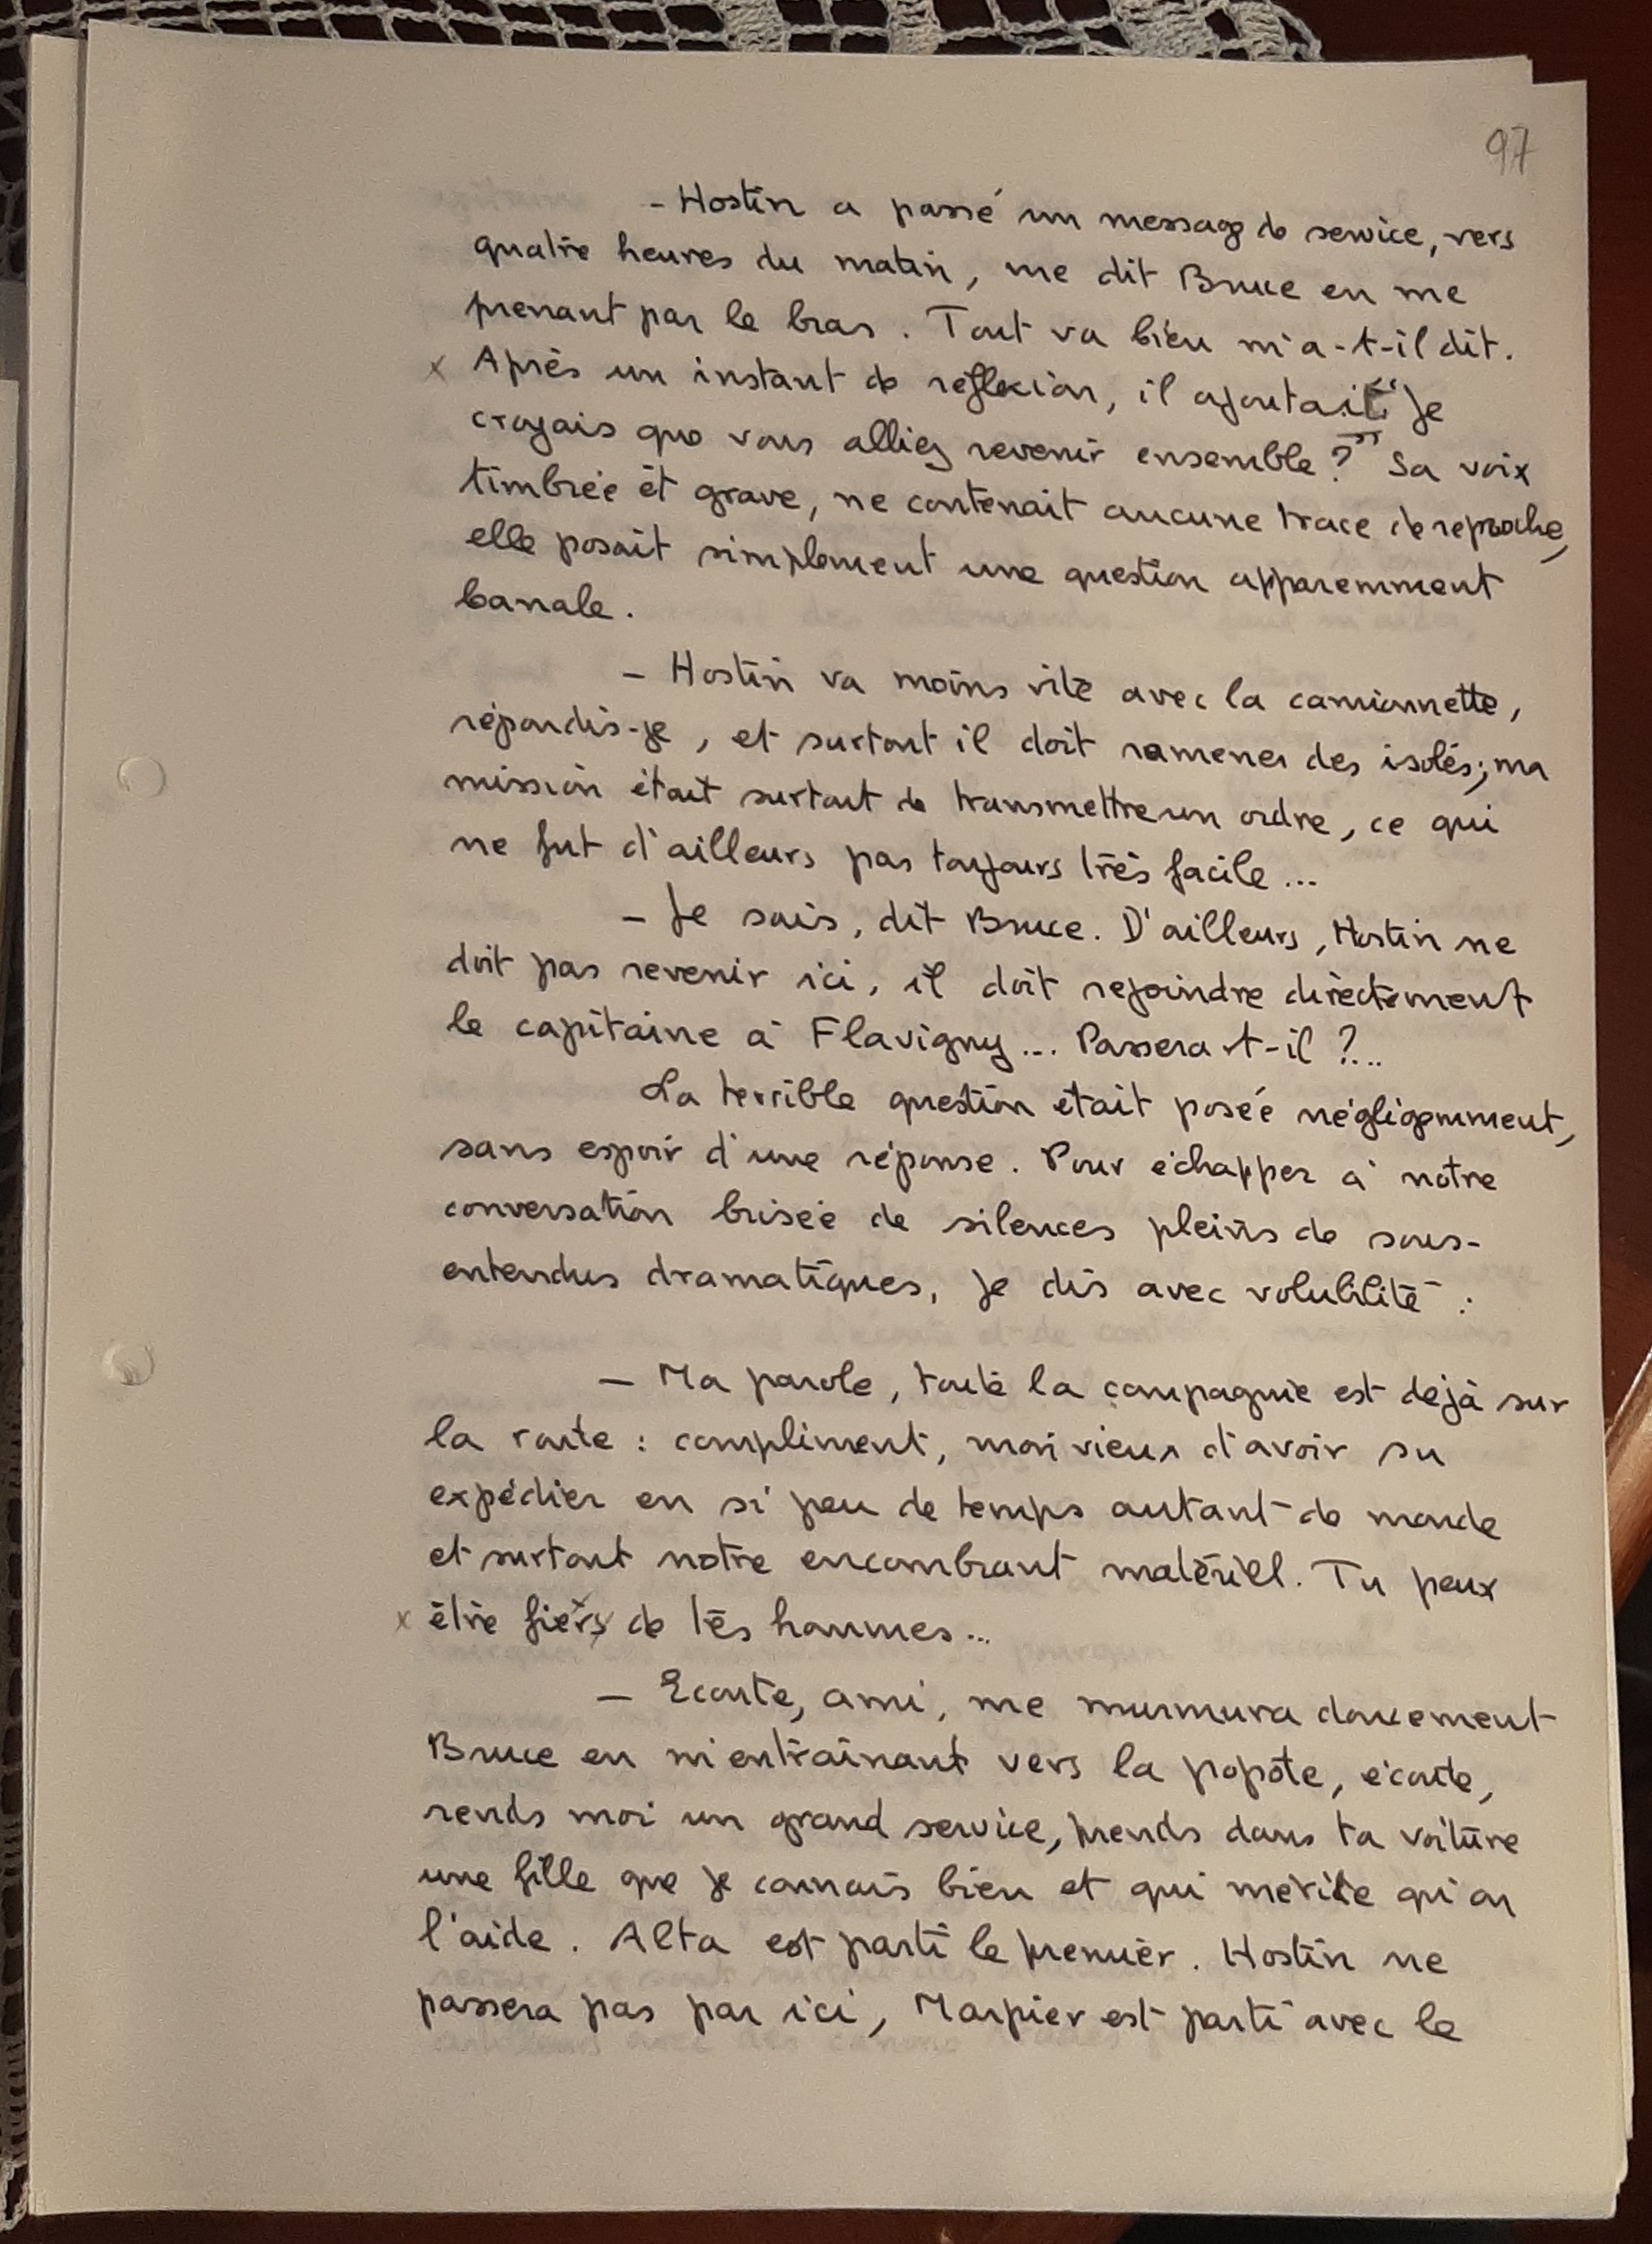 97
- Hostin a passé un message de service, vers
quatre heures du matin, me dit Bruce en me
prenant par le bras. Tout va bien m'a-t-il dit.
x Après un instant de réflexion, il ajoutait "Je
croyais que vous alliez revenir ensemble ?" Sa voix
timbrée et grave, ne contenait aucune trace de reproche,
elle posait simplement une question apparemment
banale.
- Hostin va moins vite avec la camionnette,
répondis-je, et surtout il doit ramener des isolés; ma
mission était surtout de transmettre un ordre, ce qui
ne fut d'ailleurs pas toujours très facile ...
- Je sais, dit Bruce. D'ailleurs, Hostin ne
doit pas revenir ici, il doit rejoindre directement
le capitaine à Flavigny ... Passera t-il ?...
La terrible question était posée négligemment,
sans espoir d'une réponse. Pour échapper à notre
conversation brisée de silences pleins de sous-
entendus dramatiques, je dis avec volubilité :
- Ma parole, toute la compagnie est déjà sur
la route : compliment, mon vieux d'avoir su
expédier en si peu de temps autant de monde
et surtout notre encombrant matériel. Tu peux
x être fiers de tes hommes ...
- Ecoute, ami, me murmura doucement
Bruce en m'entraînant vers la popote, écoute,
rends moi un grand service, prends dans ta voiture
une fille que je connais bien et qui mérite qu'on
l'aide. Alta est parti le premier. Hostin ne
passera pas par ici, Marpier est parti avec le